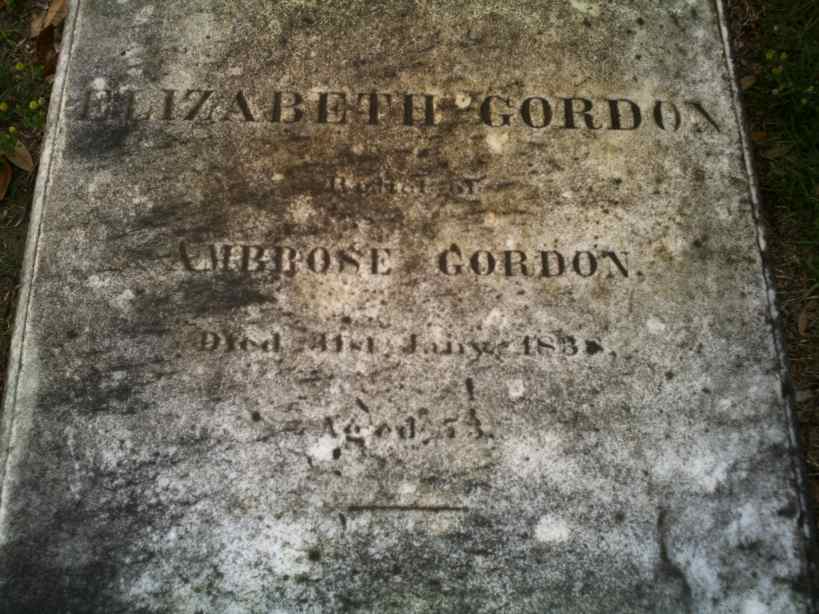 ELIZABETH GORDON
Relict of
AMBROSE GORDON.
Died 31st Jany.
Aged